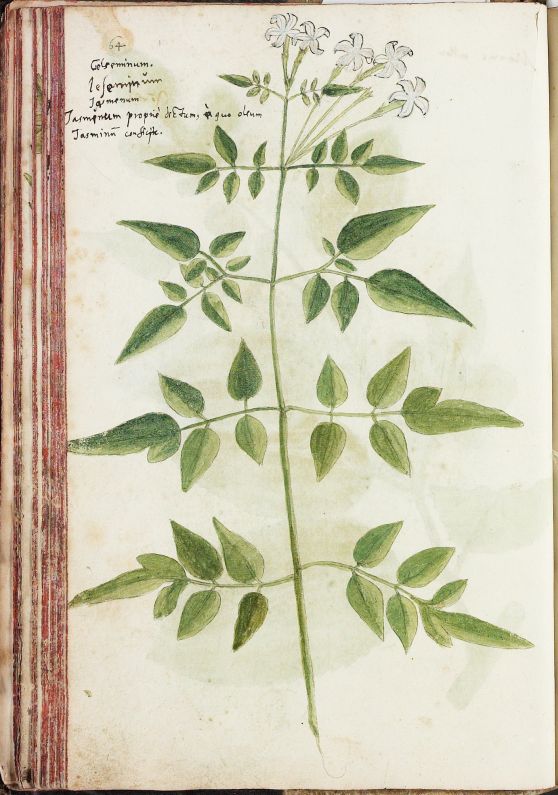 64
Gelseminum.
Ieseminum
Jasmenum
Jasminum proprie dictum, è quo oleum
Jasminū conficitur.